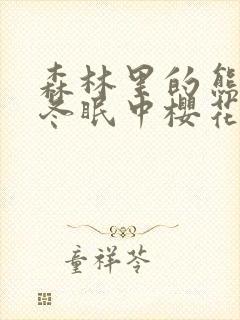 森林里的熊
冬眠中樱花
童祥苓